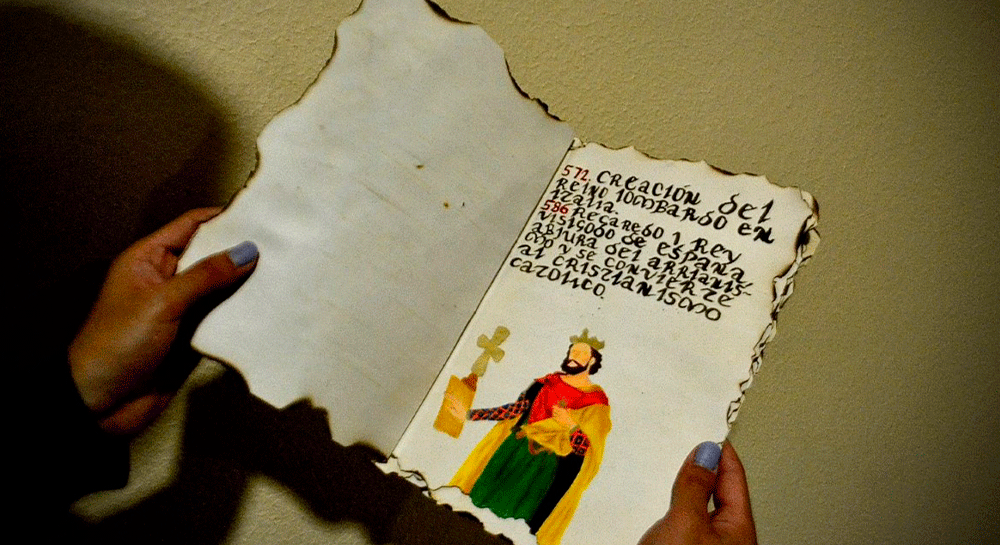 572. CREACIÓN DEL
REINO LOMBARDO EN
ITALIA.
586 RECAREDO I REY
VISIGODO DE ESPAÑA,
ABJURA DEL ARRIANIS-
MO Y SE CONVIERTE
AL CRISTIANISMO
CATÓLICO.